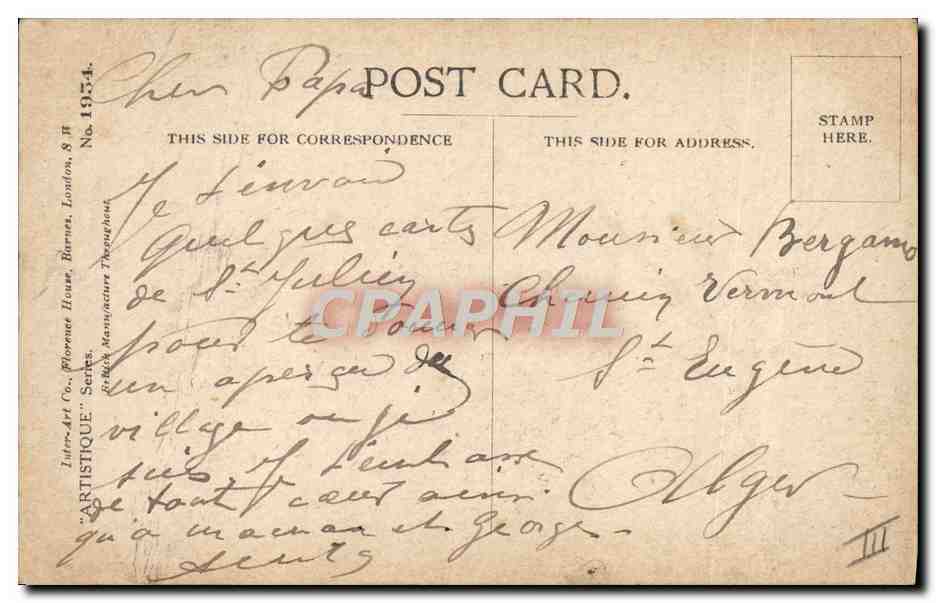 POST CARD.
THIS SIDE FOR CORRESPONDENCE
THIS SIDE FOR ADDRESS.
STAMP
HERE.
Inter-Art Co., Florence House, Barnes, London, S W
"ARTISTIQUE" Series.
British Manufacture Throughout.
No. 1934.
Cher Papa
Je t'envoie
quelques cartes
de St Julien
pour te donner
un aperçu du
village ou je
suis. Je t'embrasse
de tout cœur ainsi
qu'a maman et Georges
Monsieur Bergamo
Chemin Vermont
St Eugène
Alger
III
CPARHIL